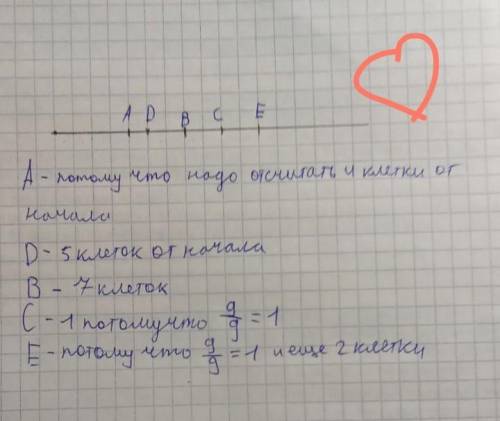 A D B C E
A - потому что надо отсчитать 4 клетки от
начала
D - 5 клеток от начала
B - 7 клеток
C - 1 потому что 9/9 = 1
E - потому что 9/9 = 1 и еще 2 клетки